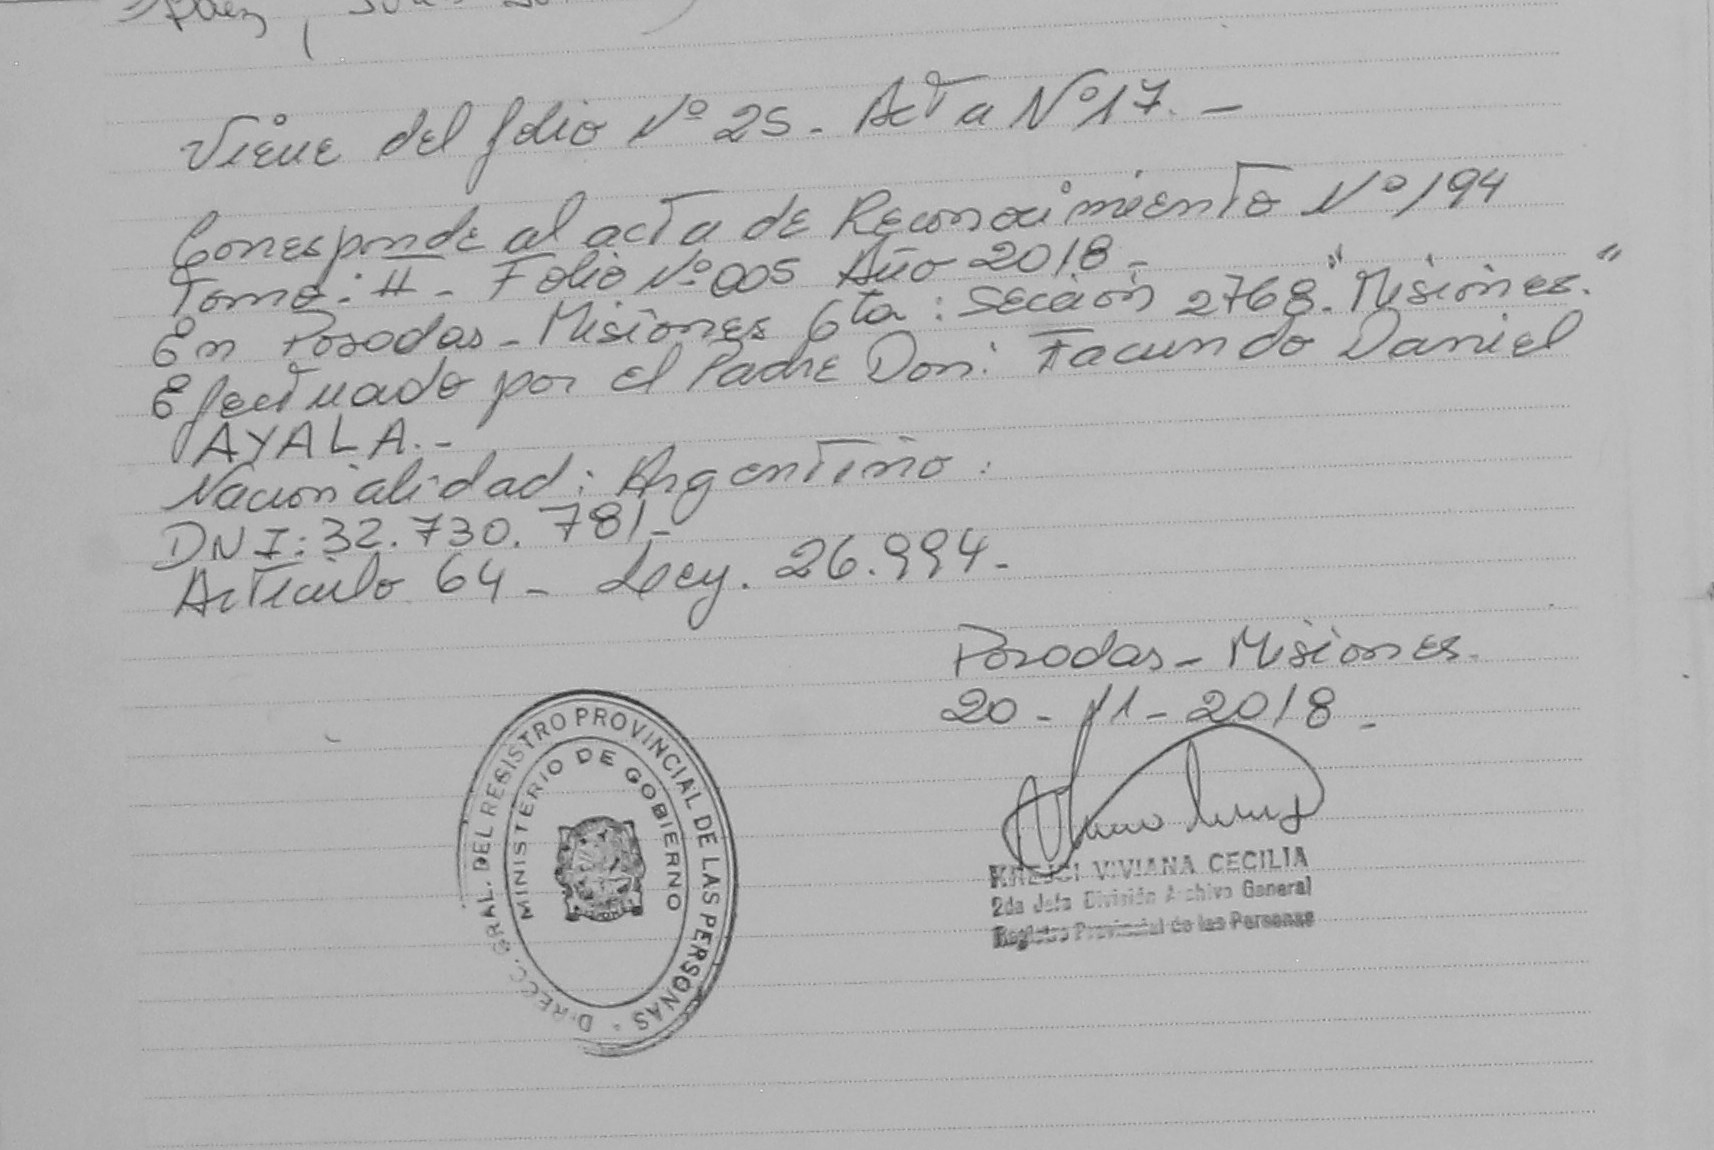 Páez,
Viene del folio Nº 25 - Acta Nº 17. -
Corresponde al acta de Reconocimiento Nº 194
Tomo: II - Folio Nº 005 Año 2018 -
En Posadas - Misiones 6ta: Sección 2768 "Misiones."
Efectuado por el Padre Don: Facundo Daniel
AYALA. -
Nacionalidad: Argentino.
DNI: 32.730.781 -
Artículo 64 - Ley. 26.994 -
Posadas - Misiones.
20 - 11 - 2018 -
DIRECC. GRAL. DEL REGISTRO PROVINCIAL DE LAS PERSONAS -
MINISTERIO DE GOBIERNO
KREJCI VIVIANA CECILIA
2da Jefa División Archivo General
Registro Provincial de las Personas